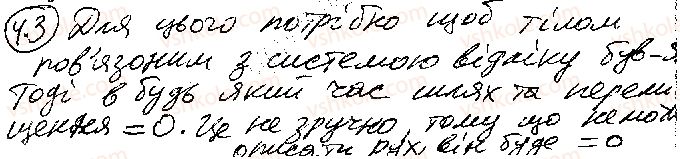 4.3 Для цього потрібно щоб тілом
пов'язоним з системою відліку був-я
Тоді в будь який час шлях та перемі
щення = 0. Це не зручно, тому що не мож
описати рух він буде = 0